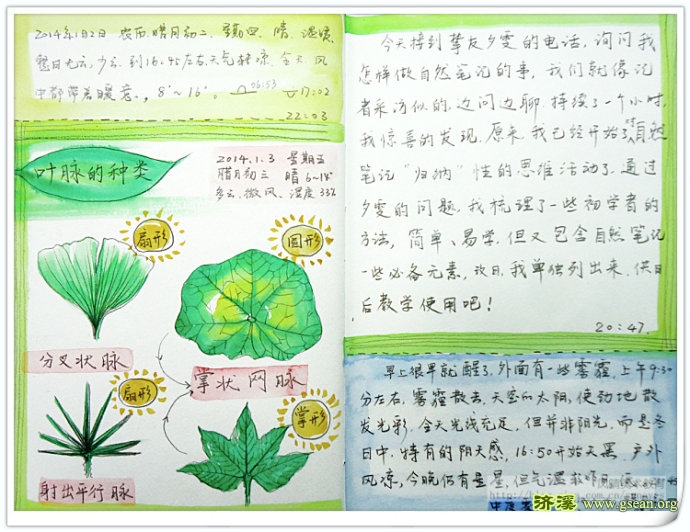 2014年1月2日 农历 腊月初二 星期四 晴 湿
整日无云,少云.到16:45左右,天气转凉.今天风
中都带着暖意., 8°~16°. 06:53 17:02
22:03
叶脉的种类
2014.1.3 星期五
腊月初三 晴 6~18°
多云、微风、湿度33%
扇形
圆形
分叉状脉
掌状网脉
扇形
掌形
射出平行脉
今天接到挚友夕雯的电话,询问我
怎样做自然笔记的事,我们就像记
者采访似的,边问边聊 持续了一个小时.
我惊喜的发现,原来,我已经开始了对自然
笔记“归纳”性的思维活动了.通过
夕雯的问题,我梳理了一些初学者的
方法,简单、易学.但又包含自然笔记
一些必备元素,改日,我单独列出来.供日
后教学使用吧!
20:47.
早上很早就醒了,外面有一些雾霾,上午9:30
分左右,雾霾散去,天空的太阳,使劲地散
发光彩.今天光线充足,但并非阳光,而是冬
日中,特有的阴天感,16:50开始天黑,户外
风凉,今晚仍有星星,但气温
济溪 www.gsean.org